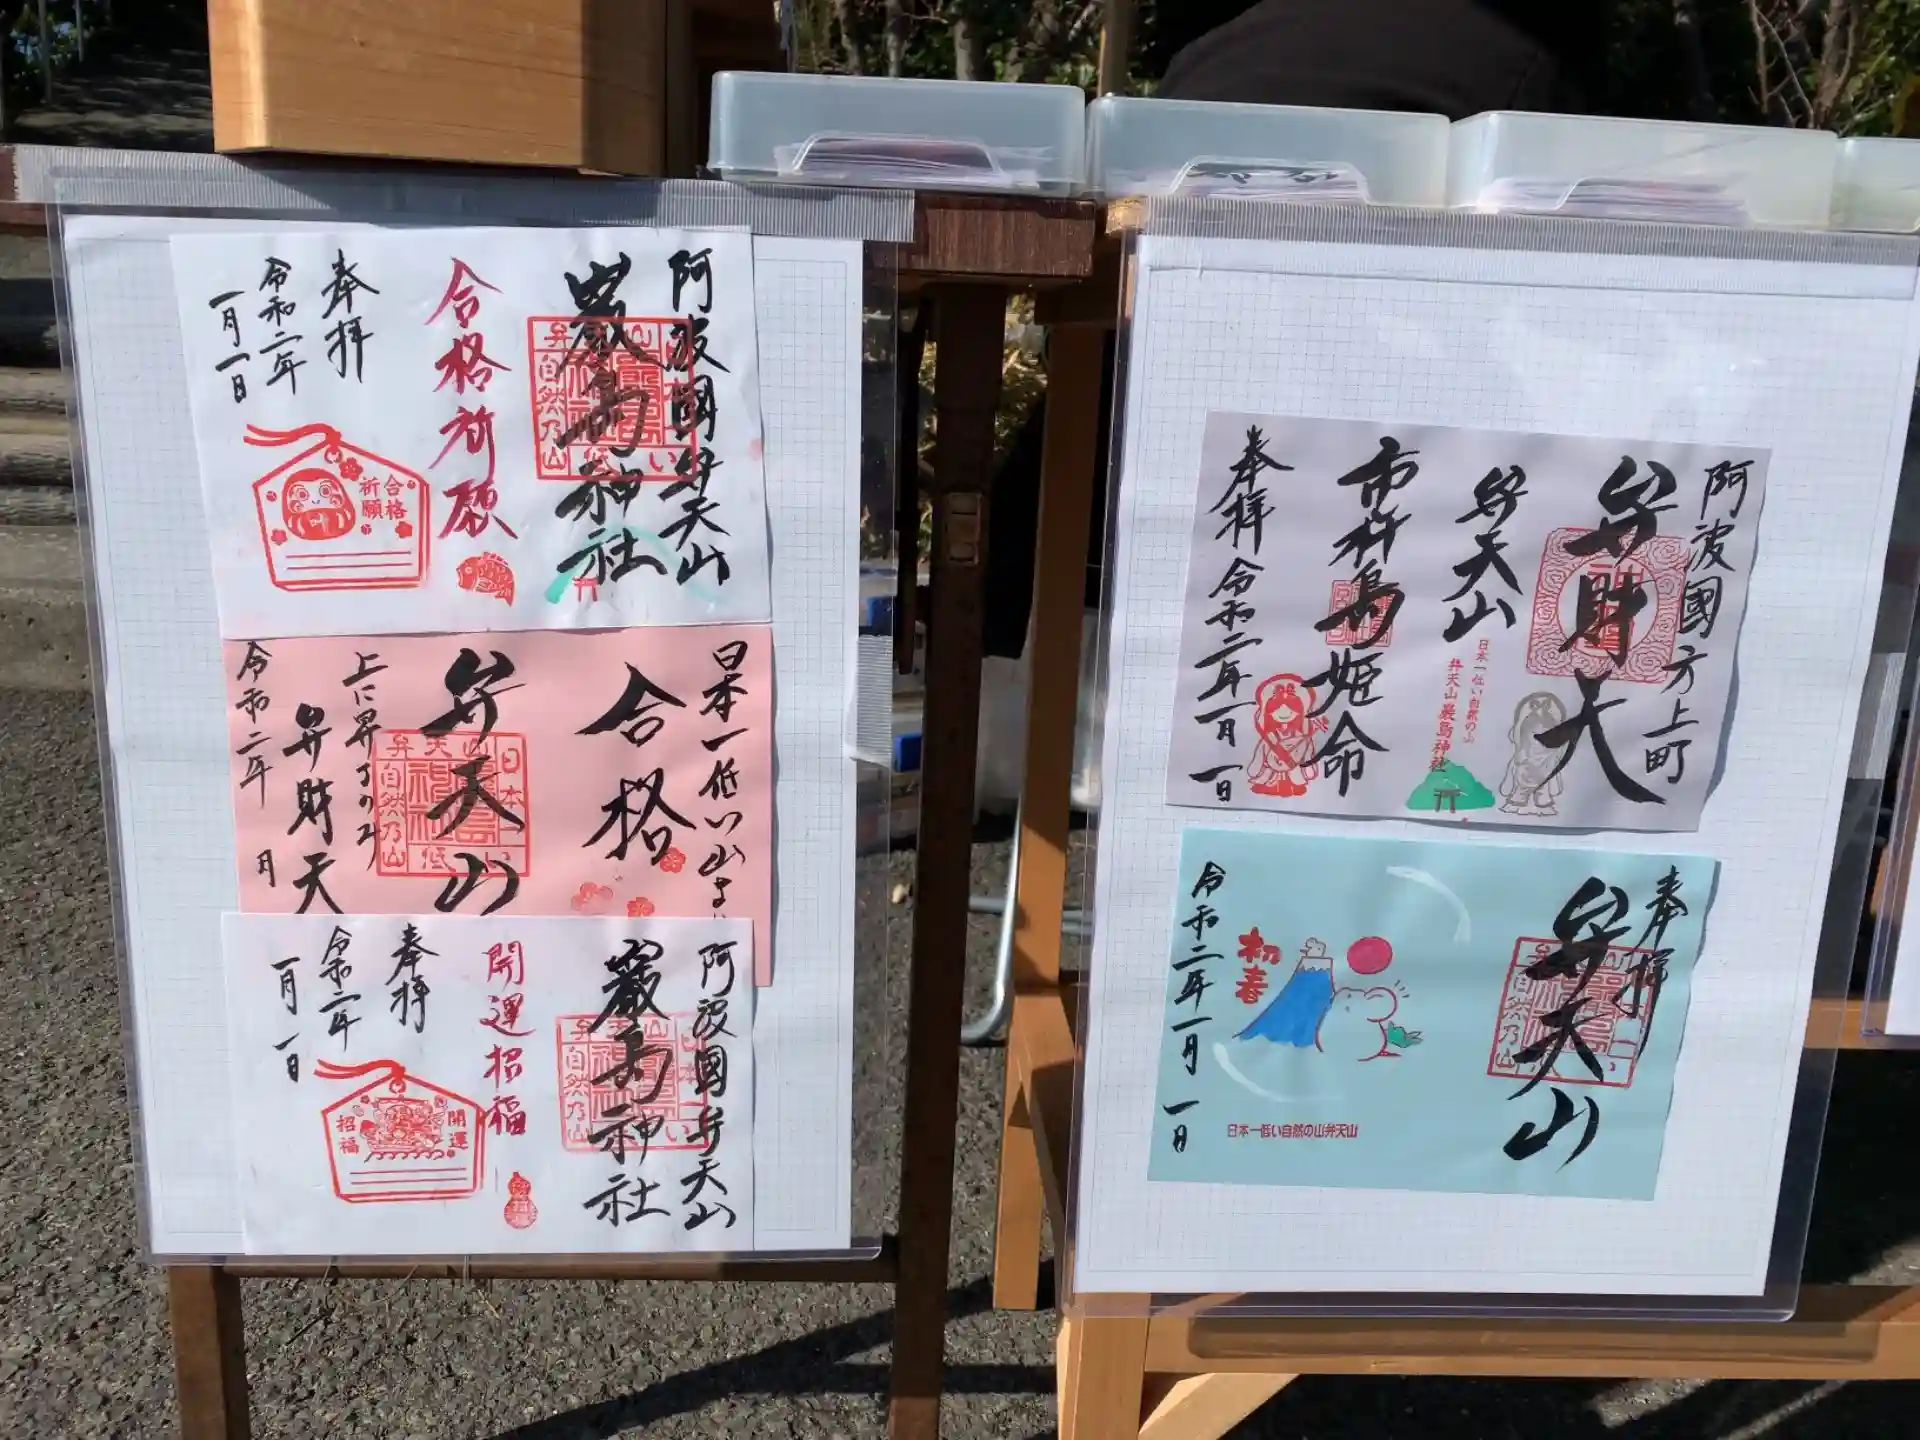 阿波國弁天山
巖島神社
合格祈願
奉拝
令和二年
一月一日
合格
祈願
日本一低い山
自然乃山
日本一低い山よ
合格
弁天山
上に昇
弁財天
令和二年
月
弁天山
日本一低い
自然乃山
阿波國弁天山
巖島神社
開運招福
奉拝
令和二年
一月一日
開運
招福
自然乃山
阿波國方上町
弁財天
弁天山
日本一低い自然の山
弁天山巖島神社
市杵島姫命
奉拝 令和二年一月一日
奉拝
弁天山
自然乃山
初春
令和二年一月一日
日本一低い自然の山弁天山